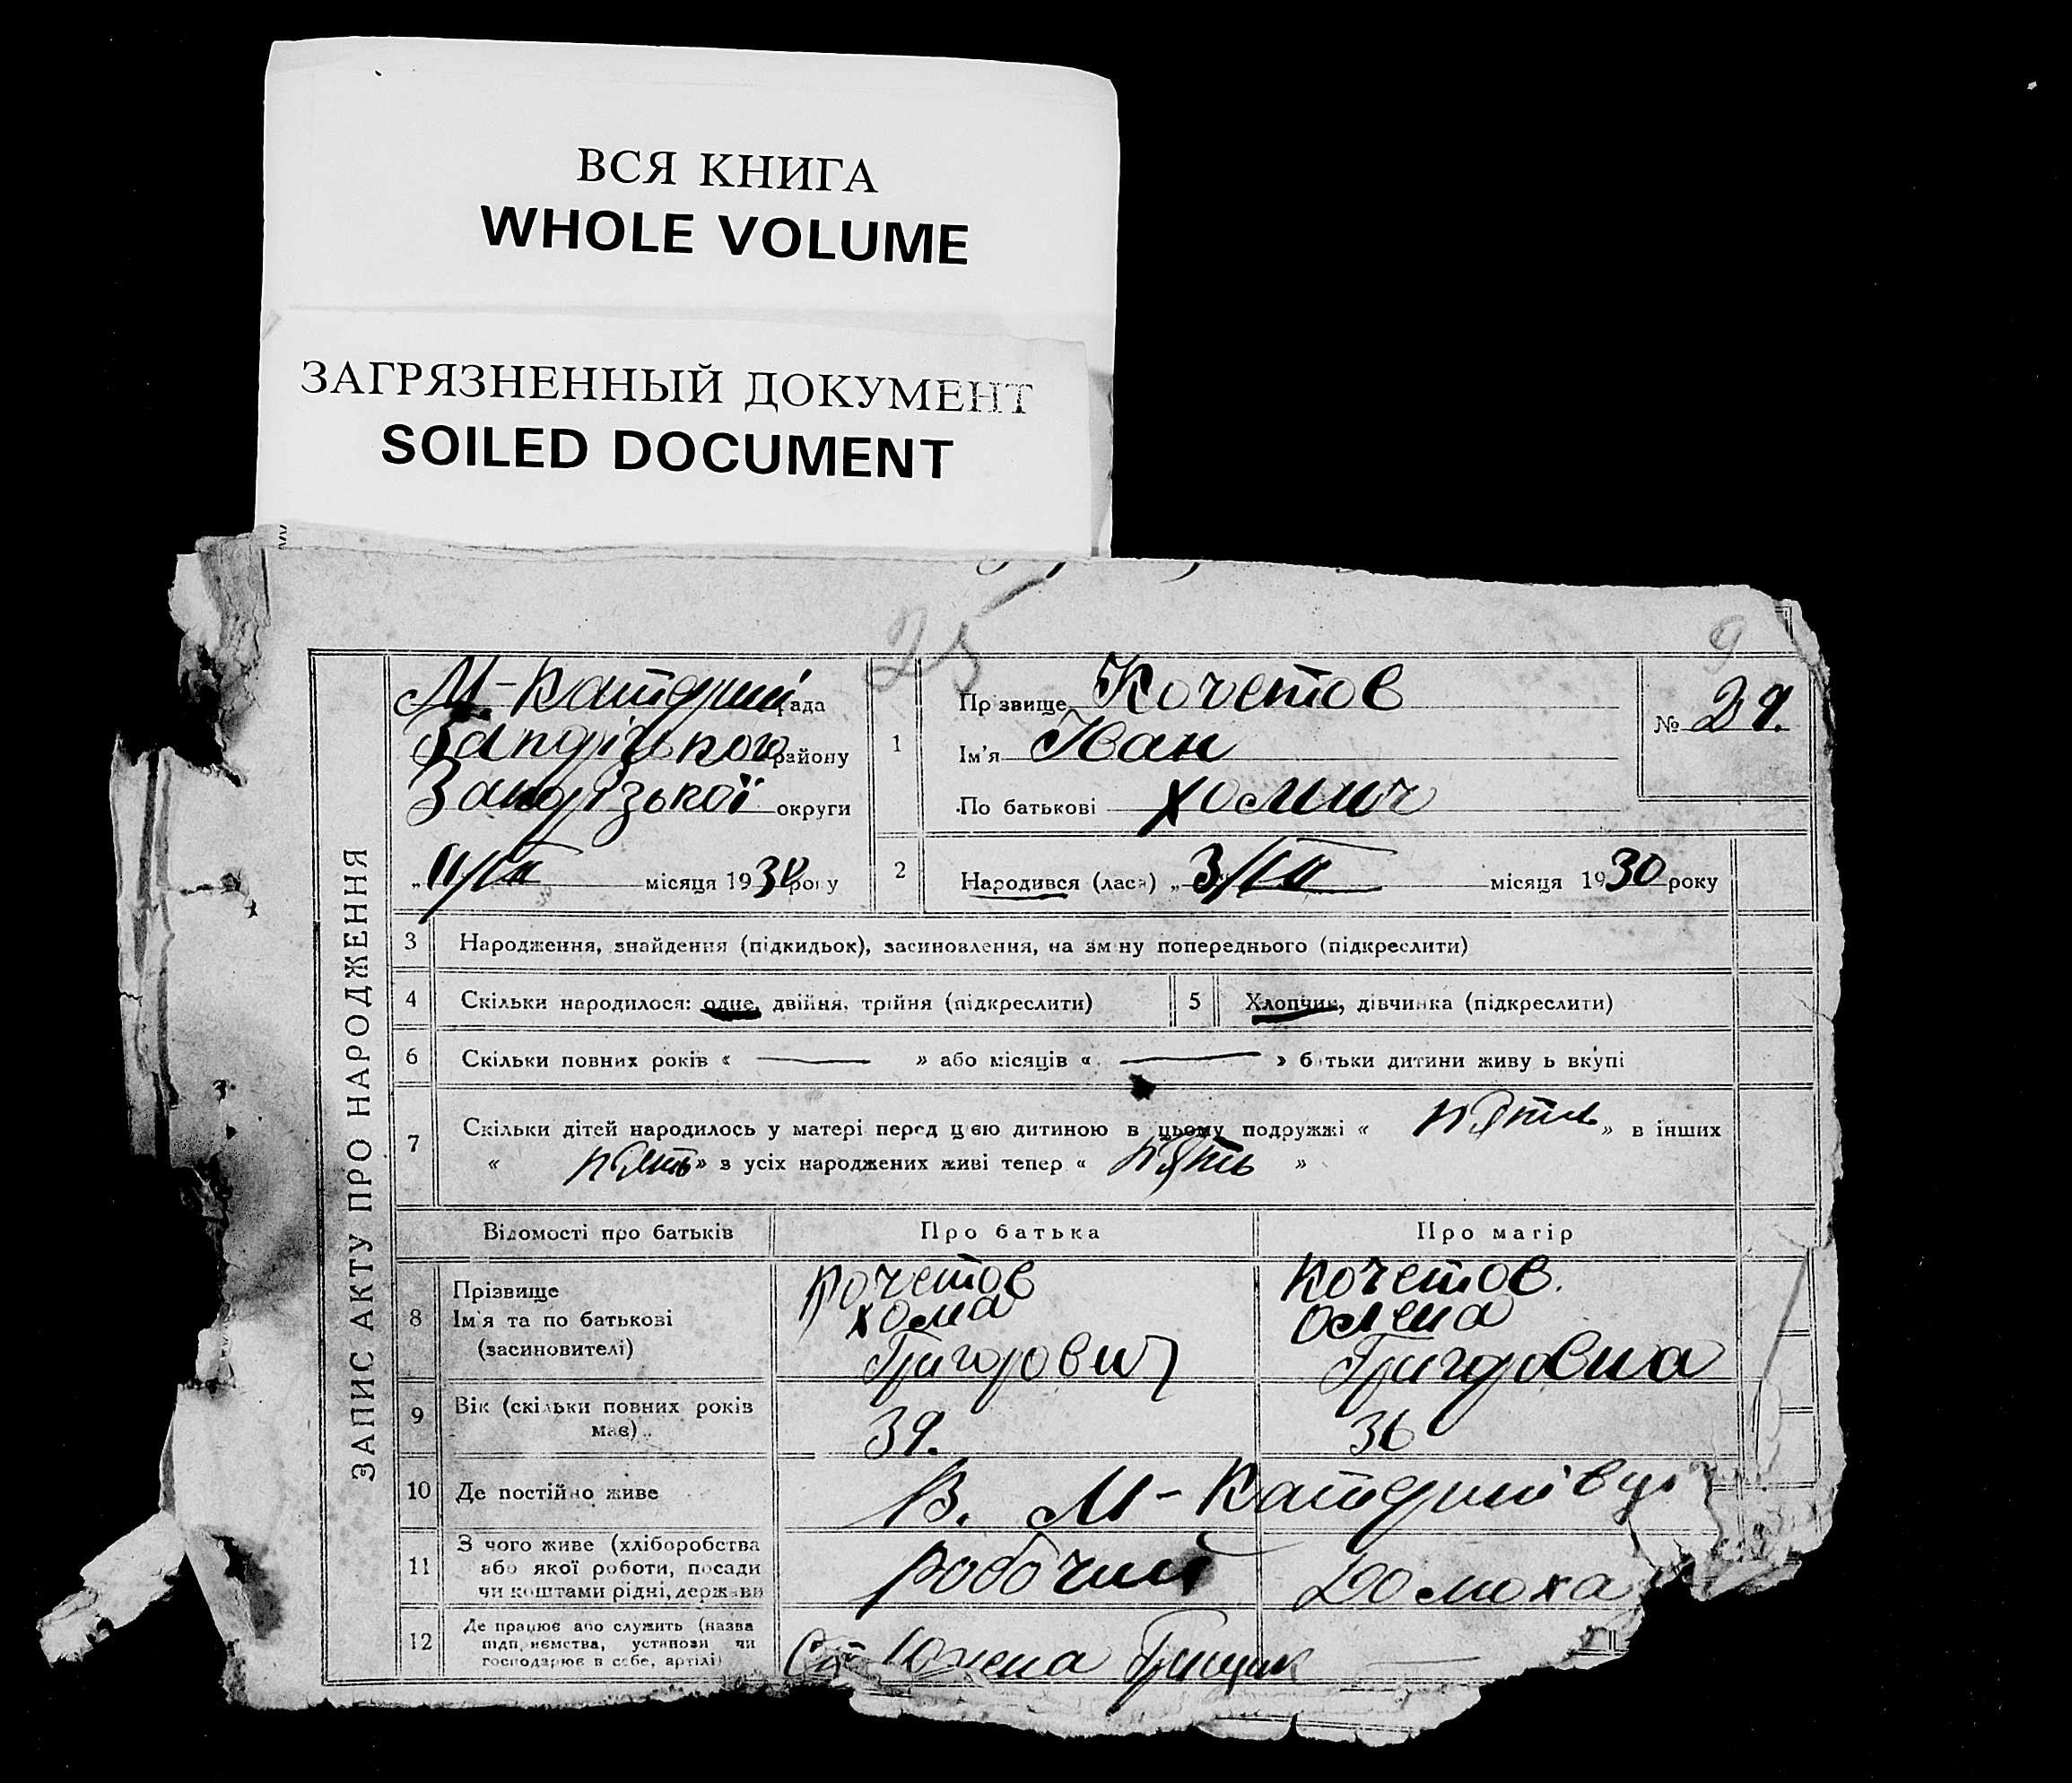 ВСЯ КНИГА
WHOLE VOLUME
ЗАГРЯЗНЕННЫЙ ДОКУМЕНТ
SOILED DOCUMENT
25
9
ЗАПИС АКТУ ПРО НАРОДЖЕННЯ
М-Катерин рада
району
Запорізької округи
„11/VII місяця 1930 року
1
Прізвище Кочетов
Ім'я Іван
По батькові Хомич
№ 29.
2 Народився (лася) „3/VII місяця 1930 року
3 Народження, знайдення (підкидьок), засиновлення, на зміну попереднього (підкреслити)
4 Скільки народилося: одне, двійня, трійня (підкреслити) 5 Хлопчик, дівчинка (підкреслити)
6 Скільки повних років « — » або місяців « — » батьки дитини живуть вкупі
7 Скільки дітей народилось у матері перед цією дитиною в цьому подружжі « пять » в інших
« пять » з усіх народжених живі тепер « пять »
Відомості про батьків Про батька Про матір
8 Прізвище Ім'я та по батькові (засиновителі)
Кочетов Хома Григорович
Кочетов. Олена Григоровна
9 Вік (скільки повних років має) .. 39. 36
10 Де постійно живе В. М-Катеринівці
11 З чого живе (хліборобства або якої роботи, посади чи коштами рідні, держави
робочий Домоха
12 Де працює або служить (назва підприємства, установи чи господарює в себе, артілі)